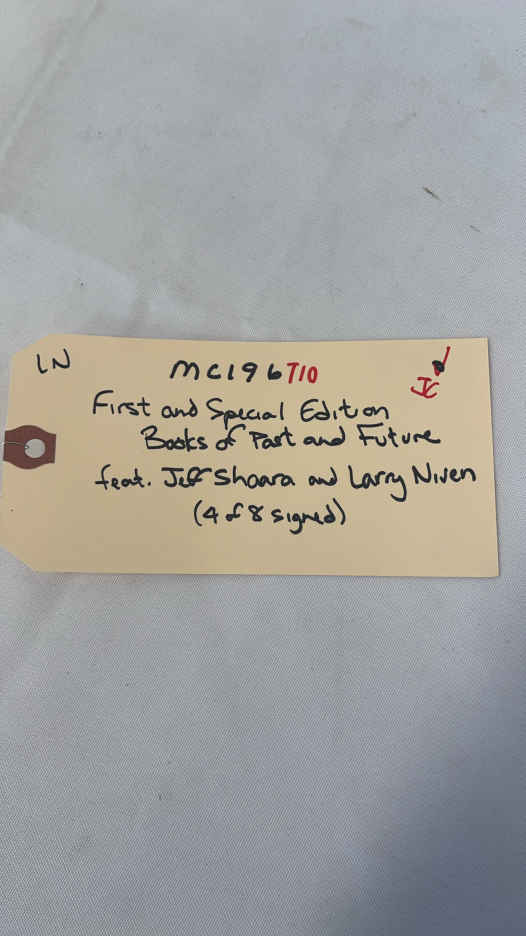 LN
MC196 T10
JC
First and Special Edition
Books of Past and Future
feat. Jeff Shaara and Larry Niven
(4 of 8 signed)